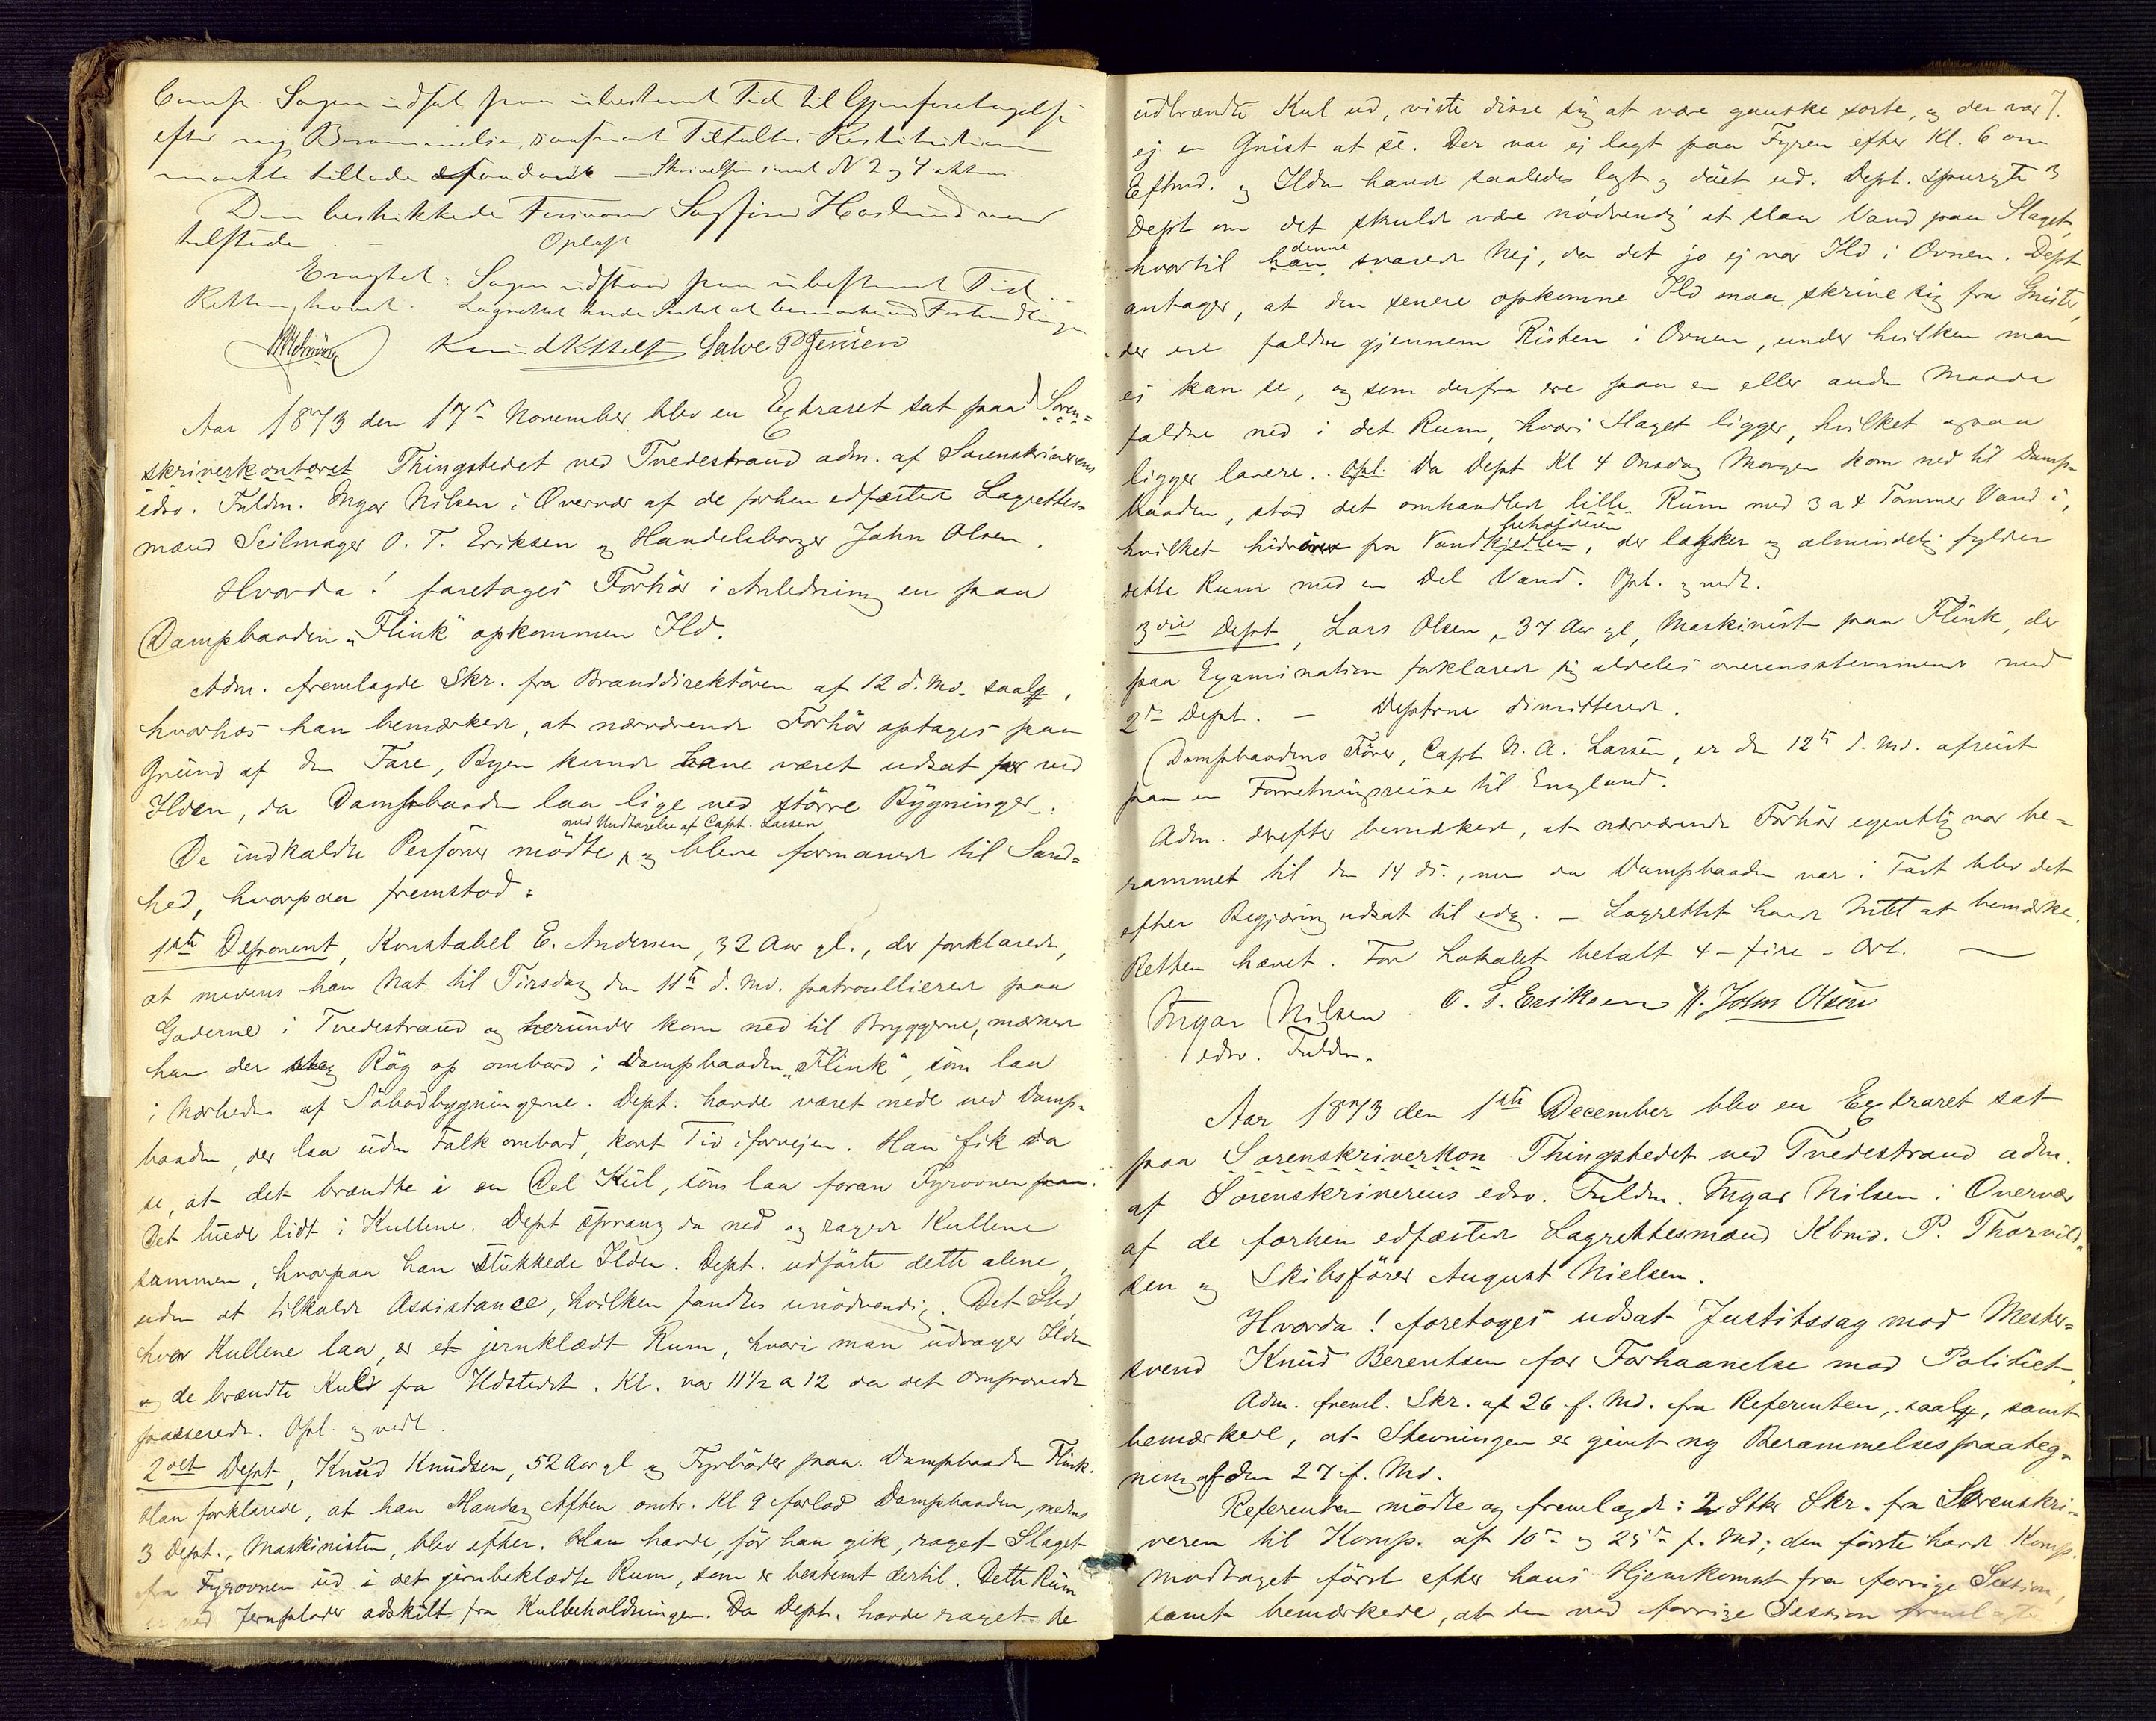 Comp. Sagen udsat paa ubestemt Tid til Gjenforetagelse
efter ny Berammelse, saafremt Tiltaltes
maatte tillade  – Skrivelsen innt N 2 og 4 
Den beskikkede Forsvarer Sagfører Haslund var
tilstede. – Oplæst
Eragtet: Sagen udstaar paa ubestemt Tid
Retten hævet. Lagrettet havde Intet at bemærke ved Forhandlingen
Knud Salve Jensen
Aar 1873 den 17de November blev en Extraret sat paa Soren=
skriverkontoret Thingstedet ved Tvedestrand adm. af Sorenskriverens
edsv. Fuldm. Ingar Nilsen i Overvær af de forhen edfæstede Lagrettes=
mænd Seilmager O. T. Eriksen og Handelsborger John Olsen.
Hvorda! foretoges Forhör i Anledning en paa
Dampbaaden „Flink“ opkommen Ild.
Adm. fremlagde Skr. fra Branddirektören af 12 d. Md. saal.,
hvorhos han bemærkede, at nærværende Forhör optages paa
Grund af den Fare, Byen kunde have været udsat for ved
Ilden, da Dampbaaden laa lige ved större Bygninger.
med Undtagelse af Capt. Larsen
De indkaldte Personer mödte, og bleve formanede til Sand=
hed, hvorpaa fremstod:
1ste Deponent, Konstabel E. Andersen, 32 Aar gl., der forklarede,
at medens han Nat til Tirsdag den 11te d. Md. patroullierede paa
Gaderne i Tvedestrand og herunder kom ned til Bryggerne, mærkede
han der steg Rög op ombord i Dampbaaden „Flink“, som laa
i Nærheden af Söbodbygningerne. Dept. havde været nede ved Damp=
baaden, der laa uden Folk ombord, kort Tid iforvejen. Han fik da
se, at det brændte i en Del Kul, som laa foran Fyrovnen paa.
Det luede lidt i Kullene. Dept sprang da ned og ragede Kullene
sammen, hvorpaa han slukkede Ilden. Dept. udförte dette alene,
uden at tilkalde Assistance, hvilken fandtes unödvendig. Det Sted,
hvor Kullene laa, er et jernklædt Rum, hvori man udrager Ilden
og de brændte Kul fra Ildstedet. Kl. var 11½ a 12 da det omprovede
passerede. Opl. og vedt.
2det Dept, Knud Knudsen, 52 Aar gl og Fyrböder paa Dampbaaden Flink.
Han forklarede, at han Mandag Aften omtr. Kl 9 forlod Dampbaaden, medens
3 Dept., Maskinisten, blev efter. Han havde, för han gik, raget Slaget
fra Fyrovnen ud i det jernbeklædte Rum, som er bestemt dertil. Dette Rum
er ved Jernplader adskilt fra Kulbeholdningen. Da Dept. havde raget de
7.
udbrændte Kul ud, viste disse sig at være ganske sorte, og der var
ej en Gnist at se. Der var ej lagt paa Fyren efter Kl. 6 om
Eftmd. og Ilden havde saaledes lagt og döet ud. Dept. spurgte 3
Dept om det skulde være nödvendig at slaa Vand paa Slaget,
denne
hvortil han svarede Nej, da det jo ej var Ild i Ovnen. Dept
antager, at den senere opkomne Ild maa skrive sig fra Gnister,
der ere faldne gjennem Risten i Ovnen, under hvilken man
ej kan se, og som derfra ere paa en eller anden Maade
faldne ned i det Rum, hvori Slaget ligger, hvilket ogsaa
ligger lavere. Opl. Da Dept Kl 4 Onsdag Morgen kom ned til Damp=
baaden, stod det omhandlede lille Rum med 3 a 4 Tommer Vand i,
beholderen
hvilket hidrörer fra Vandkjedlen, der lækker og almindelig fylder
dette Rum med en Del Vand. Opl. og vedt.
3die Dept, Lars Olsen, 37 Aar gl, Maskinist paa Flink, der
paa Examination forklarede sig aldeles overensstemmende med
2de Dept. – Deptrne dimitterede.
Dampbaadens Förer, Capt N. A. Larsen, er den 12te d. Md. afreist
paa en Forretningsreise til England.
Adm. derefter bemærkede, at nærværende Forhör egentlig var be=
rammet til den 14 ds., men da Dampbaaden var i Fart blev det
efter Begjæring udsat til idag. – Lagrettet havde Intet at bemærke.
Retten hævet. For Lokalet betalt 4 – fire – Ort. –
Ingar Nilsen O. T. Eriksen John Olsen
edsv. Fuldm.
Aar 1873 den 1ste December blev en Extraret sat
paa Sorenskriverkon Thingstedet ved Tvedestrand adm.
af Sorenskriverens edsv. Fuldm. Ingar Nilsen i Overvær
af de forhen edfæstede Lagrettesmænd Kbmd. P. Thorvild=
sen og Skibsförer August Nielsen.
Hvorda! foretoges udsat Justitssag mod Mester=
svend Knud Berentsen for Forhaanelse mod Politiet.
Adm. freml. Skr. af 26 f. Md. fra Referenten, saal., samt
bemærkede, at Stevningen er givet ny Berammelsespaateg=
ning af den 27 f. Md.
Referenten mödte og fremlagde: 2 Stkr Skr. fra Sorenskri=
veren til Komp. af 10de og 25de f. Md; den förste havde Komp.
modtaget först efter hans Hjemkomst fra forrige Session,
samt bemærkede, at den ved forrige Session fremlagte